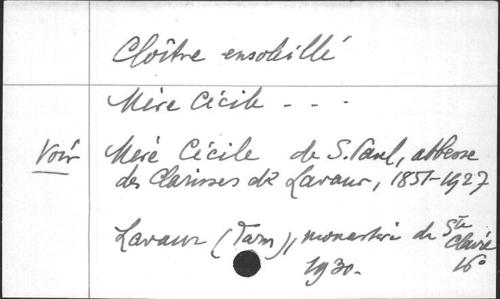 Cloître ensoleillé
Mère Cécile - - -
Voir Mère Cécile de S. Paul, abbesse
des Clarisses de Lavaur, 1851-1927
Lavaur (Tarn), monastère de Ste Claire
1930. 16°